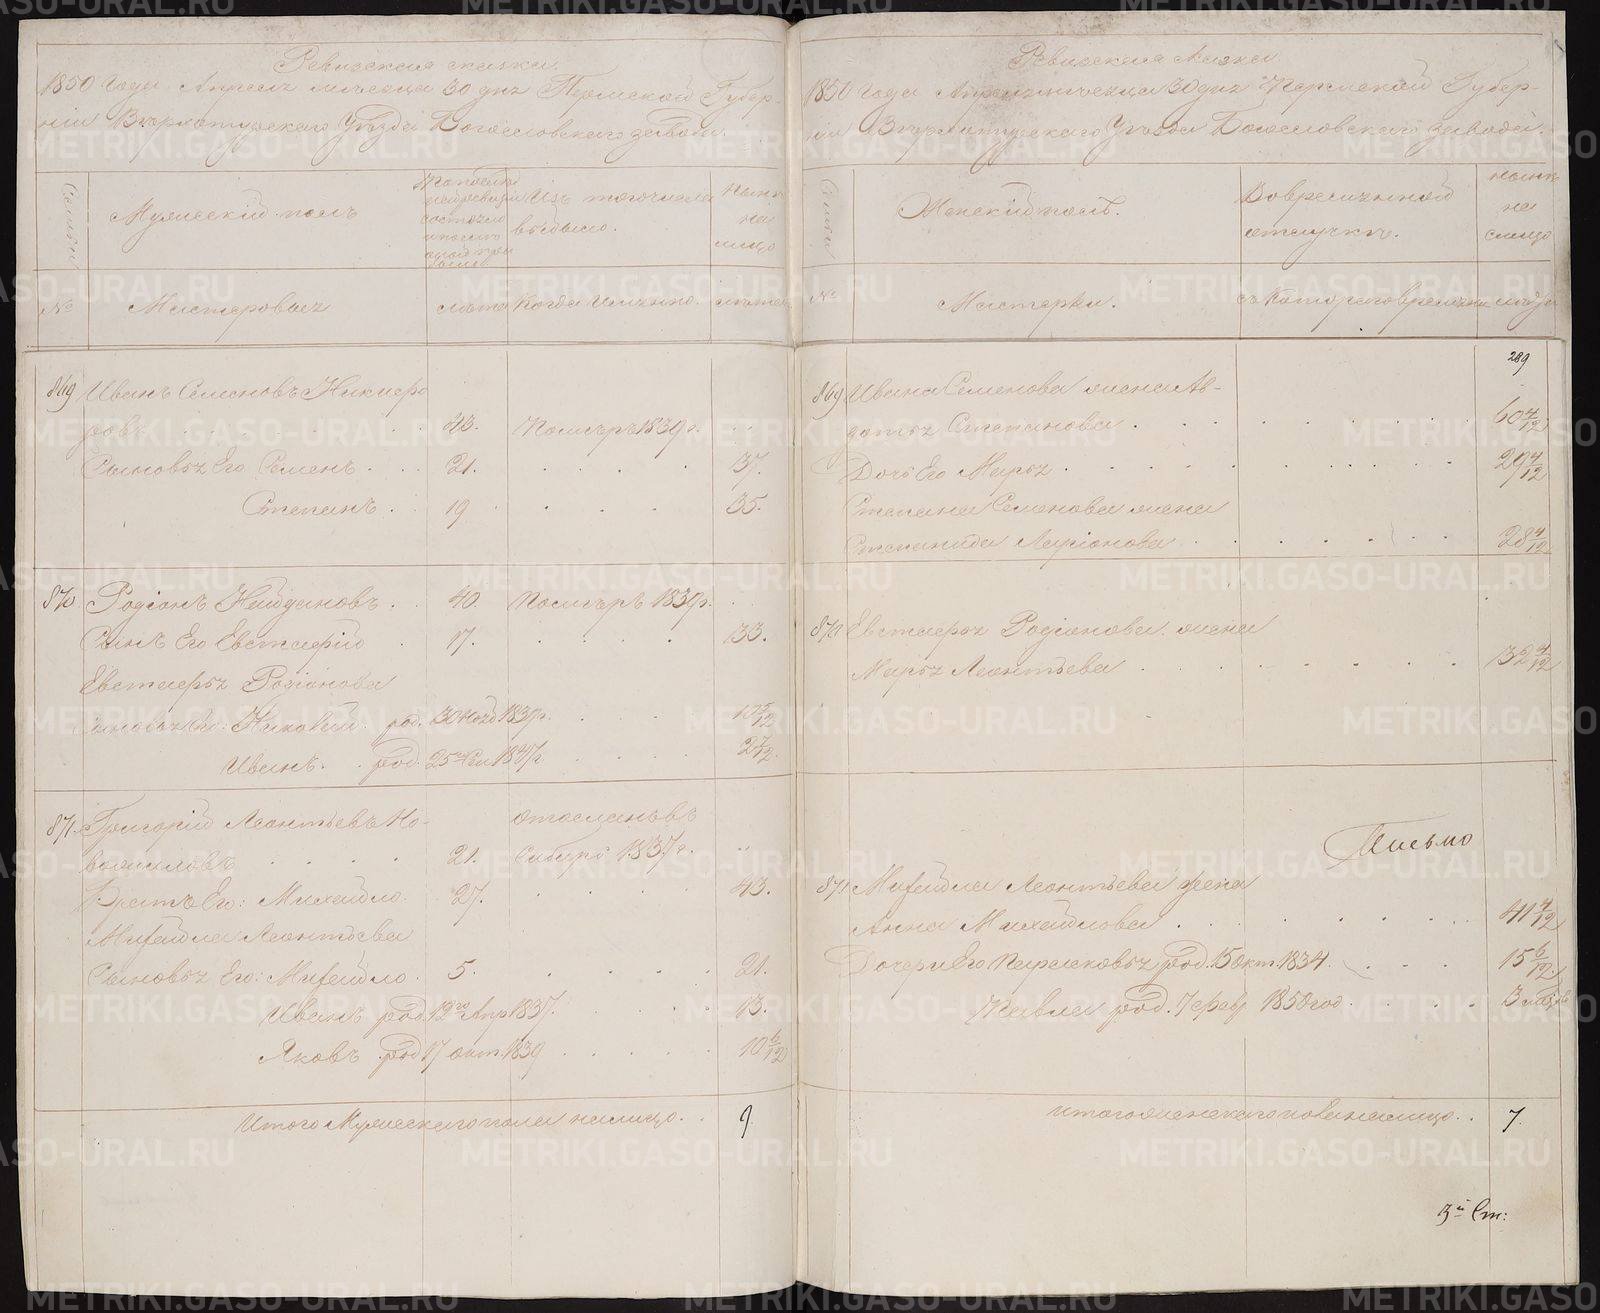 Ревизская сказка
1850 года Апреля месяца 30 дня Пермской Губер-
ніи Верхотурскаго Уѣзда Богословскаго завода
Семьи
Мужескій полъ
По последней ревизіи состояло и после оной прибыло
Изъ того числа выбыло.
Нынѣ на лицо
№
Мастеровые
лѣта
Когда Именно.
лѣта
869 Иванъ Семеновъ Никиеро
ровъ 43. Померъ 1839 г.
Сыновья Его Семенъ 21. 37.
Степанъ 19 35.
870. Родіонъ Найдановъ 40. Померъ 1839 г.
Сынъ Его Евстаѳій 17. 33.
Евстаѳья Родіонова
сыновья Его: род. 1839 г. 10 5/12
Иванъ. род. 25 1847 г. 2 7/12
871. Григорій Леонтьевъ Но- отосланъ въ
вожиловъ 21. Сибирь 1837 г.
Братъ Его: Михайло 27. 43.
Михайла Леонтьева
Сыновья Его: Михайло 5. 21.
Иванъ род. 12го Апр 1837. 13.
Яковъ род 17 окт. 1839 10 6/12
Итого Мужескаго пола налицо 9
Ревизская сказка
1850 года Апреля месяца 30 дня Пермской Губер-
ніи Верхотурскаго Уѣзда Богословскаго завода.
Семьи
Женскій полъ.
Во временной отлучкѣ.
Нынѣ на лицо
№
Мастерки.
Съ котораго времени
лѣта
289
869 Ивана Семенова жена Ав-
дотья Степанова 60 4/12
Дочь Его Марья 29 4/12
Степана Семенова жена
Степанида Ларіонова 28 4/12
870 Евстаѳья Родіонова жена
Марья Леонтьева 32 4/12
Письмо
871 Михайла Леонтьева жена
Анна Михайлова 41 4/12
Дочери Его Парасковья род. 15 окт. 1834. 15 6/12
Павла род. 7 февр 1850 год 3 мѣсяц
итого женскаго пола налицо 7.
3й Ст:
METRIKI.GASO-URAL.RU